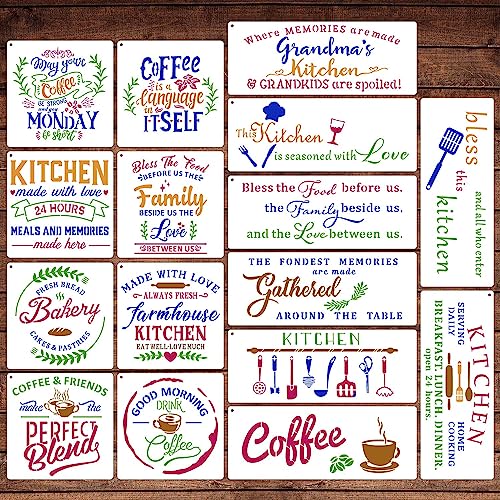 May your
Coffee
BE STRONG
and your
MONDAY
be short
COFFEE
is a
language
in
ITSELF
Where MEMORIES are made
Grandma's
Kitchen
& GRANDKIDS are spoiled!
This Kitchen
is seasoned with Love
KITCHEN
made with love
24 HOURS
MEALS AND MEMORIES
made here
Bless The Food
BEFORE US THE
Family
BESIDE US THE
Love
BETWEEN US
Bless the Food before us,
the Family beside us,
and the Love between us.
bless
this
kitchen
and all who enter
FRESH BREAD
Bakery
CAKES & PASTRIES
MADE WITH LOVE
ALWAYS FRESH
farmhouse
KITCHEN
EAT WELL·LOVE MUCH
THE FONDEST MEMORIES
are made
Gathered
AROUND THE TABLE
KITCHEN
KITCHEN
SERVING
DAILY
HOME
COOKING
BREAKFAST. LUNCH. DINNER.
open 24 hours.
COFFEE & FRIENDS
make the
PERFECT
Blend
GOOD MORNING
DRINK
Coffee
Coffee